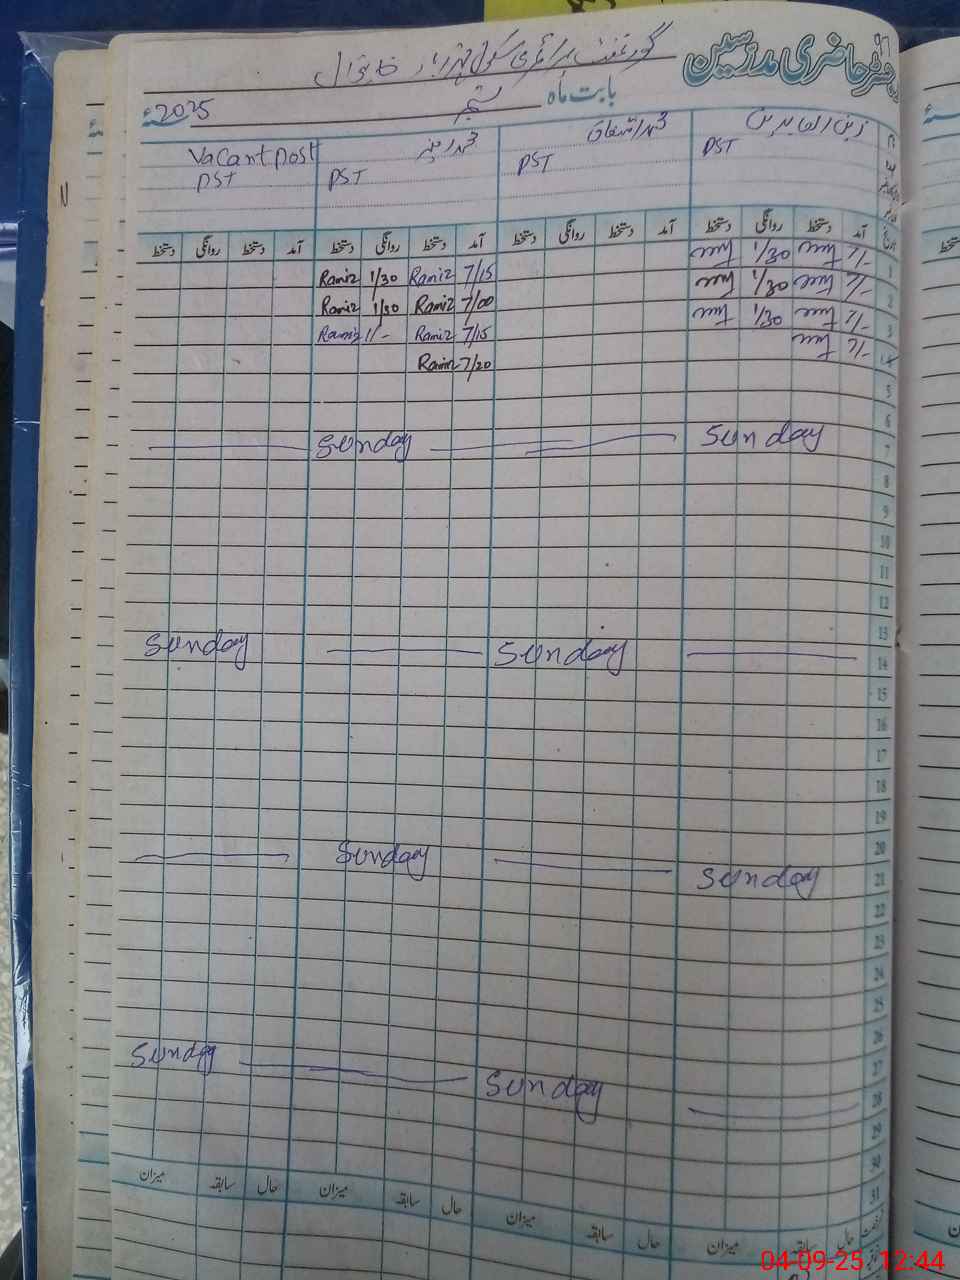 رجسٹر حاضری مدرسین
گورنمنٹ پرائمری سکول
بابت ماہ ستمبر 2025ء
زین العابدین PST
محمد اشفاق PST
محمد رامیز PST
Vacant post PST
تاریخ آمد دستخط روانگی دستخط آمد دستخط روانگی دستخط آمد دستخط روانگی دستخط آمد دستخط روانگی دستخط
1 7/- 1/30 7/15 Ramiz 1/30 Ramiz
2 7/- 1/30 7/00 Ramiz 1/30 Ramiz
3 7/- 1/30 7/15 Ramiz 1/- Ramiz
4 7/- 7/20 Ramiz
5
6
7 Sunday Sunday
8
9
10
11
12
13
14 Sunday Sunday
15
16
17
18
19
20
21 Sunday Sunday
22
23
24
25
26
27
28 Sunday Sunday
29
30
31
حال سابقہ میزان حال سابقہ میزان حال سابقہ میزان حال سابقہ میزان
04-09-25 12:44